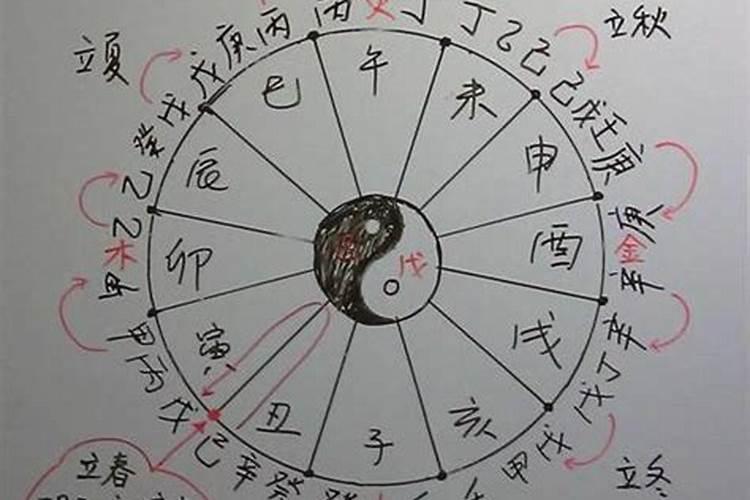 立夏
立秋
立冬
立春
午
未
申
酉
戌
亥
子
丑
寅
卯
辰
巳
戊
火
木
金
丙
丁
丁
乙
己
己
戊
壬
庚
庚
辛
辛
丁
戊
戊
甲
癸
辛
己
戊
丙
甲
甲
乙
乙
癸
戊
戊
庚
丙